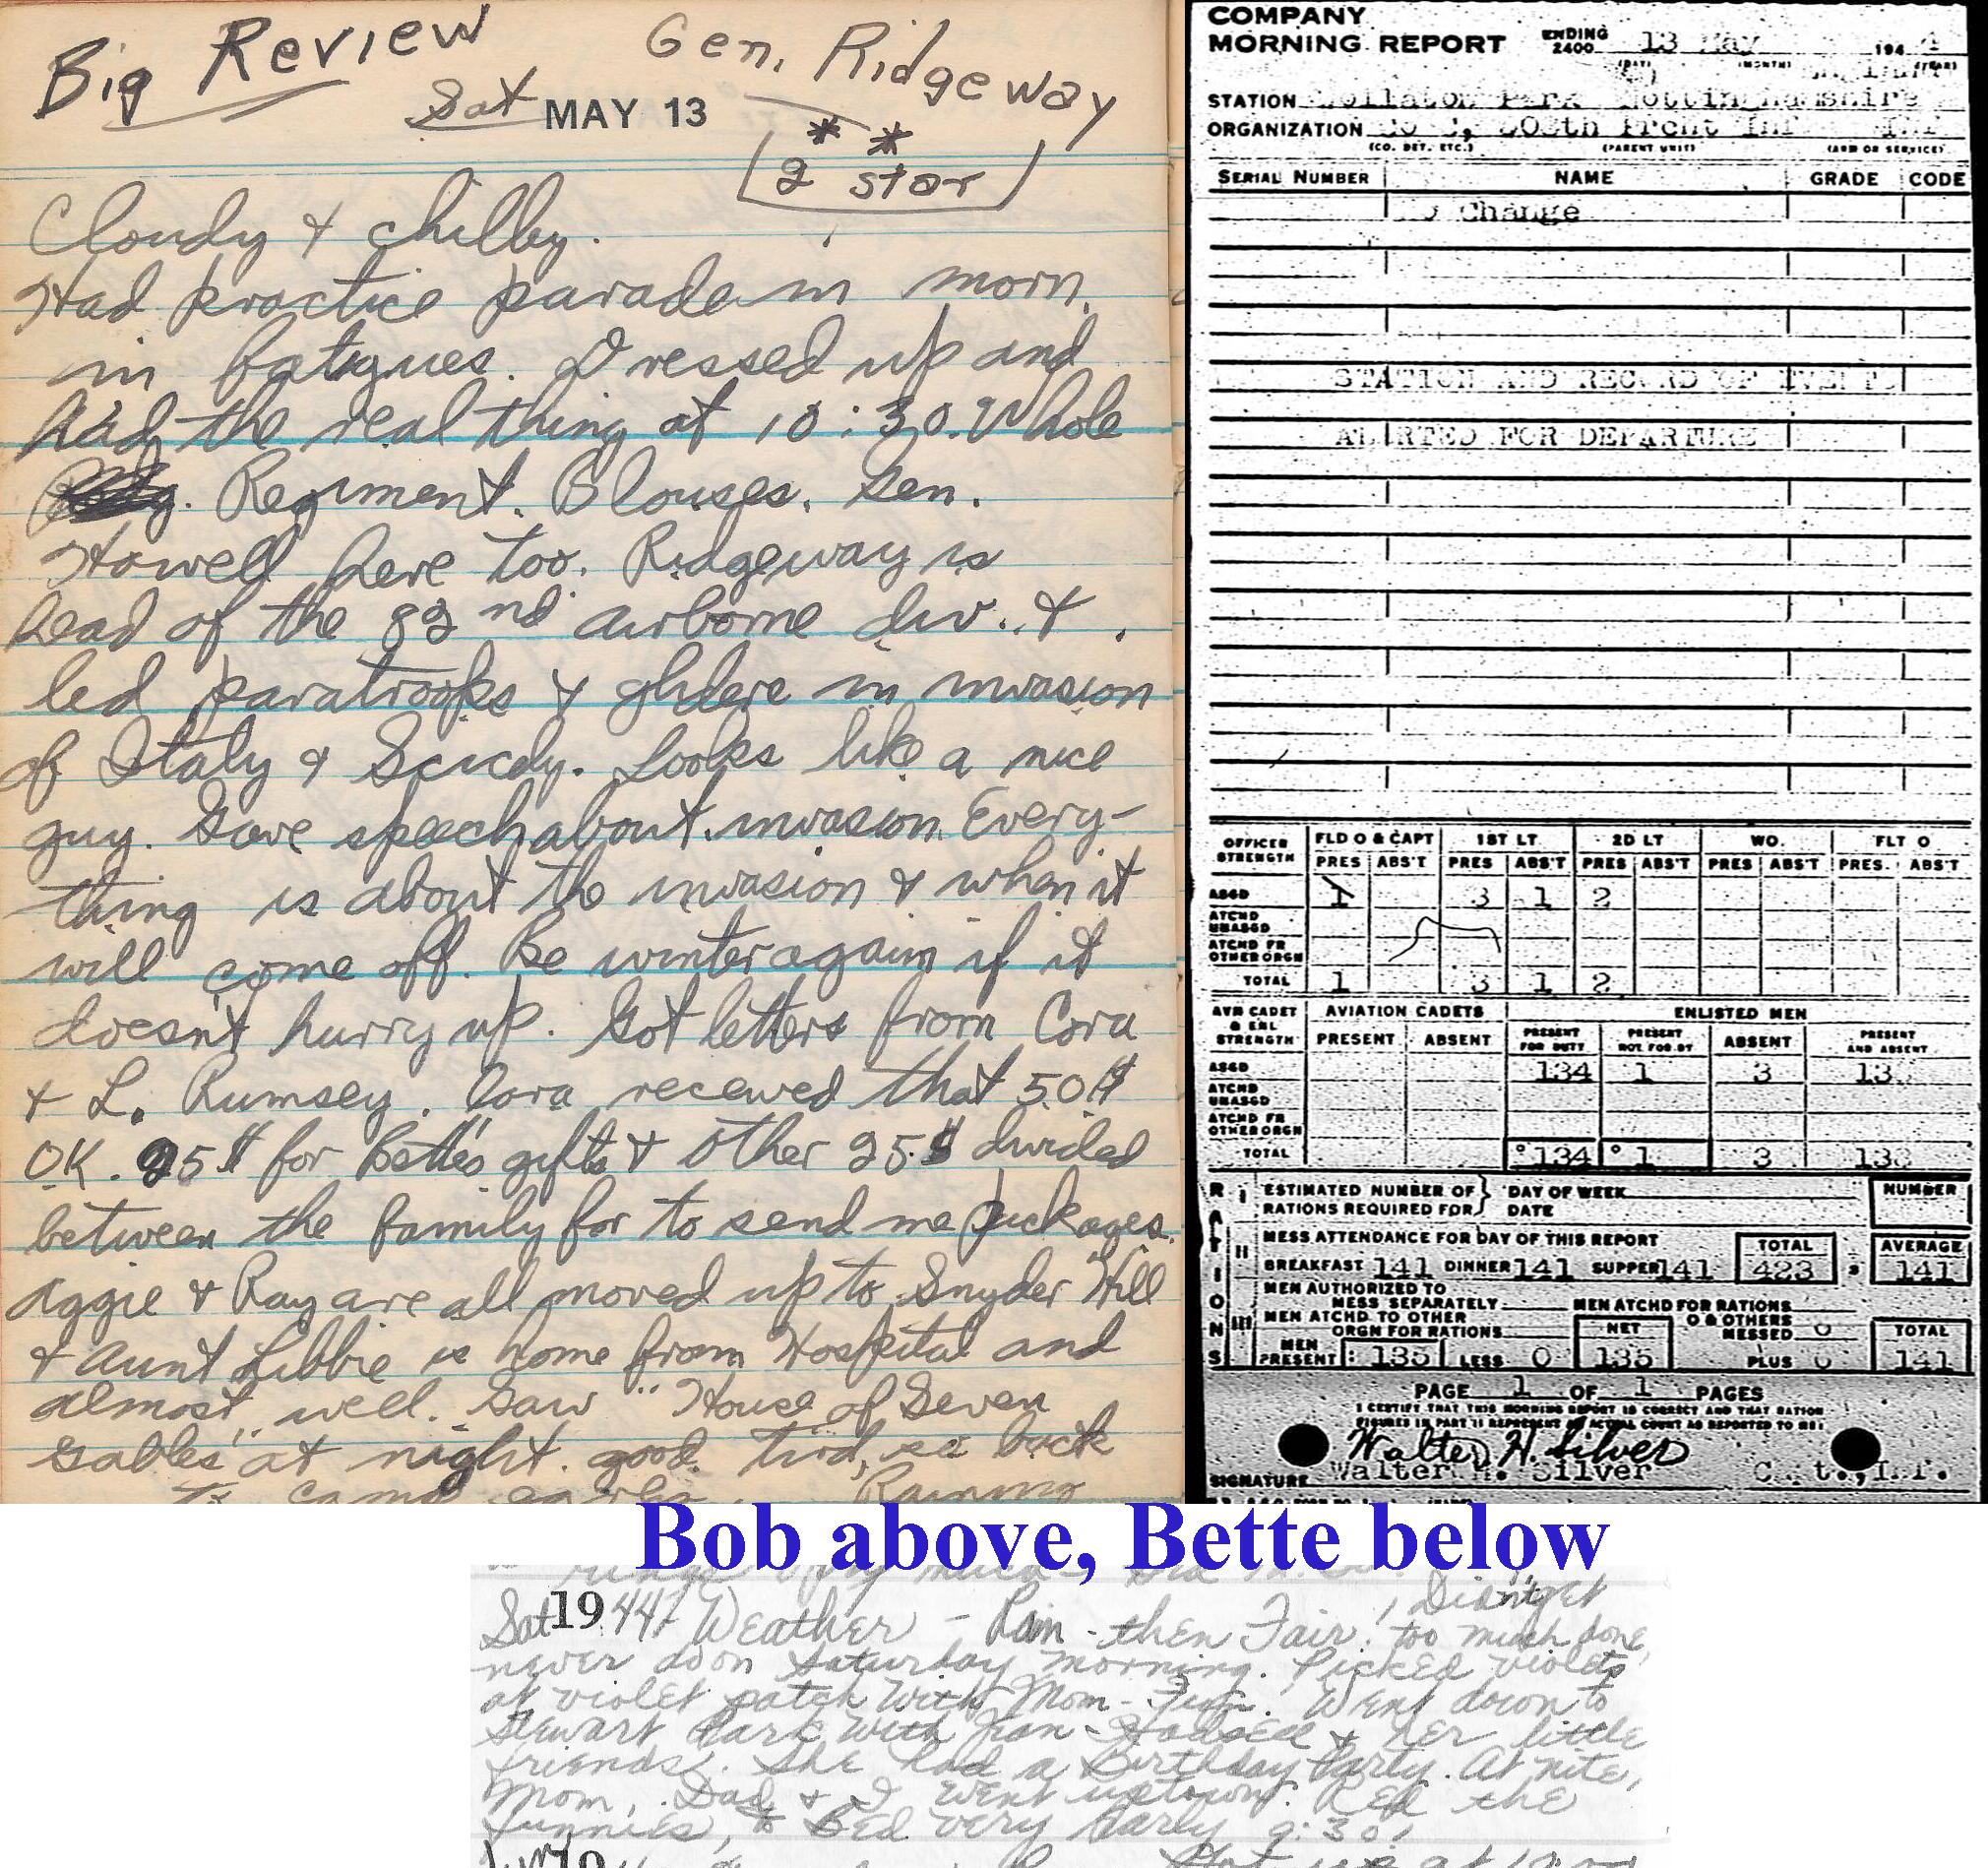 Big Review Gen. Ridgeway
Sat MAY 13
* *
2 star
Cloudy & chilly.
Had practice parade in morn.
in fatigues. Dressed up and
had the real thing at 10:30. Whole
Regiment. Blouses. Gen.
Howell here too. Ridgeway is
head of the 82nd airborne div. &
led paratroops & gliders in invasion
of Italy & Sicily. Looks like a nice
guy. Gave speech about invasion. Every-
thing is about the invasion & when it
will come off. Be winter again if it
doesn't hurry up. Got letters from Cora
& L. Rumsey. Cora received that 50$
OK. 25$ for Bette's gifts & other 25$ divided
between the family for to send me packages.
Aggie & Ray are all moved up to Snyder Hill
& Aunt Libbie is home from Hospital and
almost well. Saw "House of Seven
Gables" at night. good. tird, so back
to camp early. Raining
COMPANY
MORNING REPORT ENDING 2400 13 May 194 4
(DAY) (MONTH) (YEAR)
STATION Wollaton Park Nottinghamshire
ORGANIZATION Co C, Prcht Inf Inf
(CO. DET. ETC.) (PARENT UNIT) (ARM OR SERVICE)
SERIAL NUMBER NAME GRADE CODE
Change
STATION AND RECORD OF EVENTS
ALERTED FOR DEPARTURE
OFFICER STRENGTH FLD O & CAPT 1ST LT 2D LT WO. FLT O
PRES ABS'T PRES ABS'T PRES ABS'T PRES ABS'T PRES. ABS'T
ASGD 1 3 1 2
ATCHD UNASGD
ATCHD FR OTHER ORGN
TOTAL 1 3 1 2
AVN CADET & ENL STRENGTH AVIATION CADETS ENLISTED MEN
PRESENT ABSENT PRESENT FOR DUTY PRESENT NOT FOR DY ABSENT PRESENT AND ABSENT
ASGD 134 1 3
ATCHD UNASGD
ATCHD FR OTHER ORGN
TOTAL 134 1 3 138
RATIONS
I ESTIMATED NUMBER OF RATIONS REQUIRED FOR DAY OF WEEK DATE NUMBER
II MESS ATTENDANCE FOR DAY OF THIS REPORT TOTAL AVERAGE
BREAKFAST 141 DINNER 141 SUPPER 141 423 3 141
III MEN AUTHORIZED TO MESS SEPARATELY MEN ATCHD FOR RATIONS
MEN ATCHD TO OTHER ORGN FOR RATIONS NET O & OTHERS MESSED 0 TOTAL
MEN PRESENT: 135 LESS 0 135 PLUS 0 141
PAGE 1 OF 1 PAGES
I CERTIFY THAT THIS MORNING REPORT IS CORRECT AND THAT RATION
FIGURES IN PART II REPRESENT ACTUAL COUNT AS REPORTED TO ME:
Walter H. Silver
SIGNATURE Walter H. Silver
Bob above, Bette below
Sat 1944 Weather - Rain - then Fair! Didn't get
too much done,
never do on Saturday morning. Picked violets
at violet patch with Mom - Fun. Went down to
Stewart Park with Jean & her little
friends. She had a Birthday Party. At nite,
Mom, Dad & I went uptown. Red the
funnies, to Bed very Early 9:30!